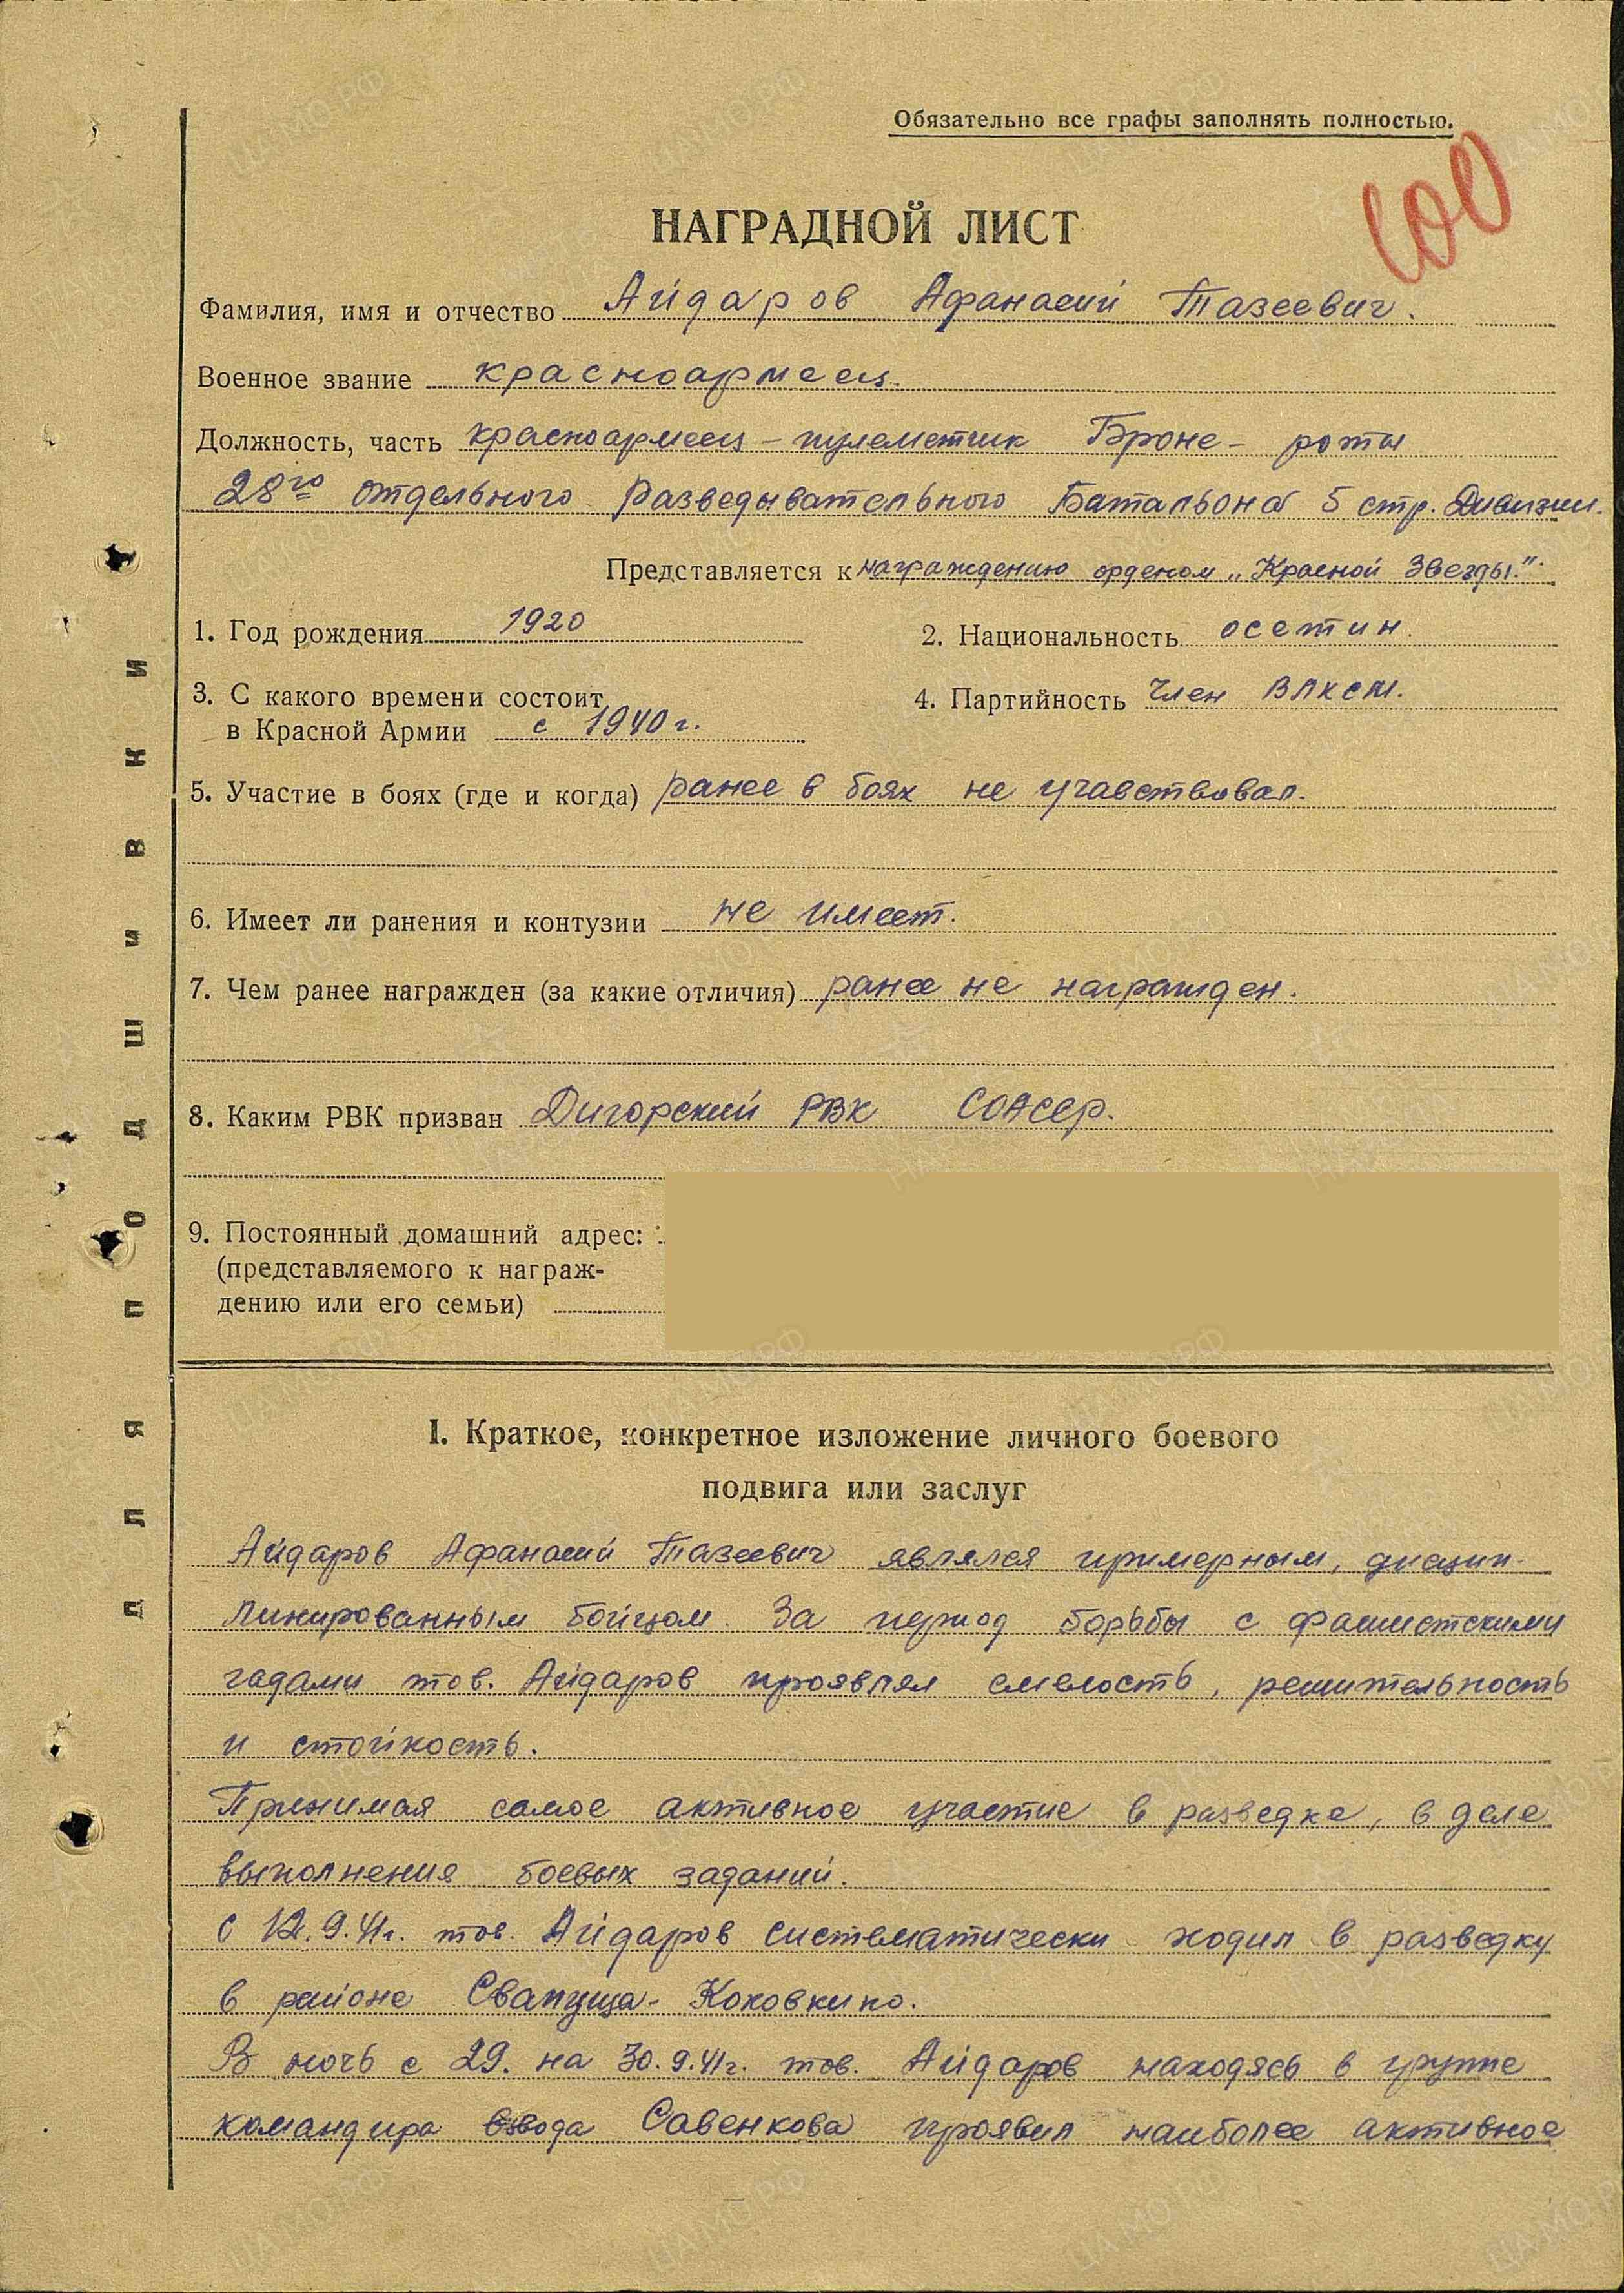 Обязательно все графы заполнять полностью.
100
НАГРАДНОЙ ЛИСТ
Фамилия, имя и отчество Айдаров Афанасий Тазеевич.
Военное звание красноармеец.
Должность, часть красноармеец - пулеметчик Броне - роты
28го отдельного Разведывательного Батальона 5 стр. Дивизии.
Представляется к награждению орденом „Красной Звезды."
1. Год рождения 1920
2. Национальность осетин.
3. С какого времени состоит
в Красной Армии с 1940 г.
4. Партийность Член ВЛКСМ.
5. Участие в боях (где и когда) ранее в боях не учавствовал.
6. Имеет ли ранения и контузии не имеет.
7. Чем ранее награжден (за какие отличия) ранее не награжден.
8. Каким РВК призван Дигорский РВК СОАССР.
9. Постоянный домашний адрес:
(представляемого к награж-
дению или его семьи)
I. Краткое, конкретное изложение личного боевого
подвига или заслуг
Айдаров Афанасий Тазеевич являлся примерным, дисцип-
линированным бойцом. За период борьбы с фашистскими
гадами тов. Айдаров проявлял смелость, решительность
и стойкость.
Принимая самое активное участие в разведке, в деле
выполнения боевых заданий.
С 12.9.41г. тов. Айдаров систематически ходил в разведку
в районе Свапуща - Коковкино.
В ночь с 29. на 30.9.41г. тов. Айдаров находясь в группе
командира взвода Савенкова проявил наиболее активное
Для подшивки
ЦА МО РФ